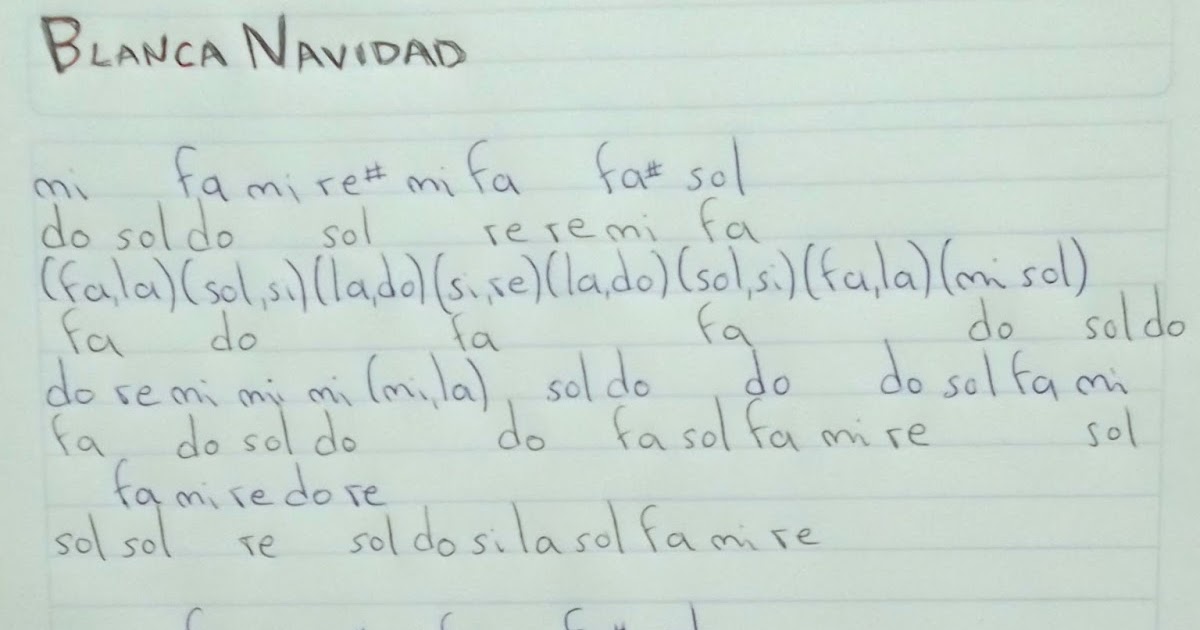 BLANCA NAVIDAD
mi fa mi re# mi fa fa# sol
do sol do sol re re mi fa
(fa,la)(sol,si)(la,do)(si,re)(la,do)(sol,si)(fa,la)(mi sol)
fa do fa fa do sol do
do re mi mi mi (mi,la) sol do do do sol fa mi
fa do sol do do fa sol fa mi re sol
fa mi re do re
sol sol re sol do si la sol fa mi re